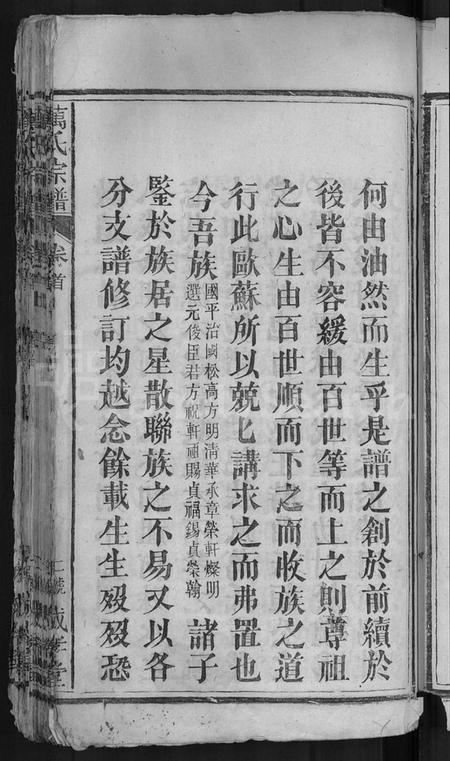 何由油然而生乎是譜之創於前續於
後皆不容緩由百世等而上之則尊祖
之心生由百世順而下之而收族之道
行此歐蘇所以兢匕講求之而弗置也
今吾族國平治國松高方明清華承章榮軒燦明
選元俊臣君方祝軒祖賜貞福錫貞榮翰
諸子
鑒於族居之星散聯族之不易又以各
分支譜修訂均越念餘載生生歿歿恐
萬氏宗譜
卷首